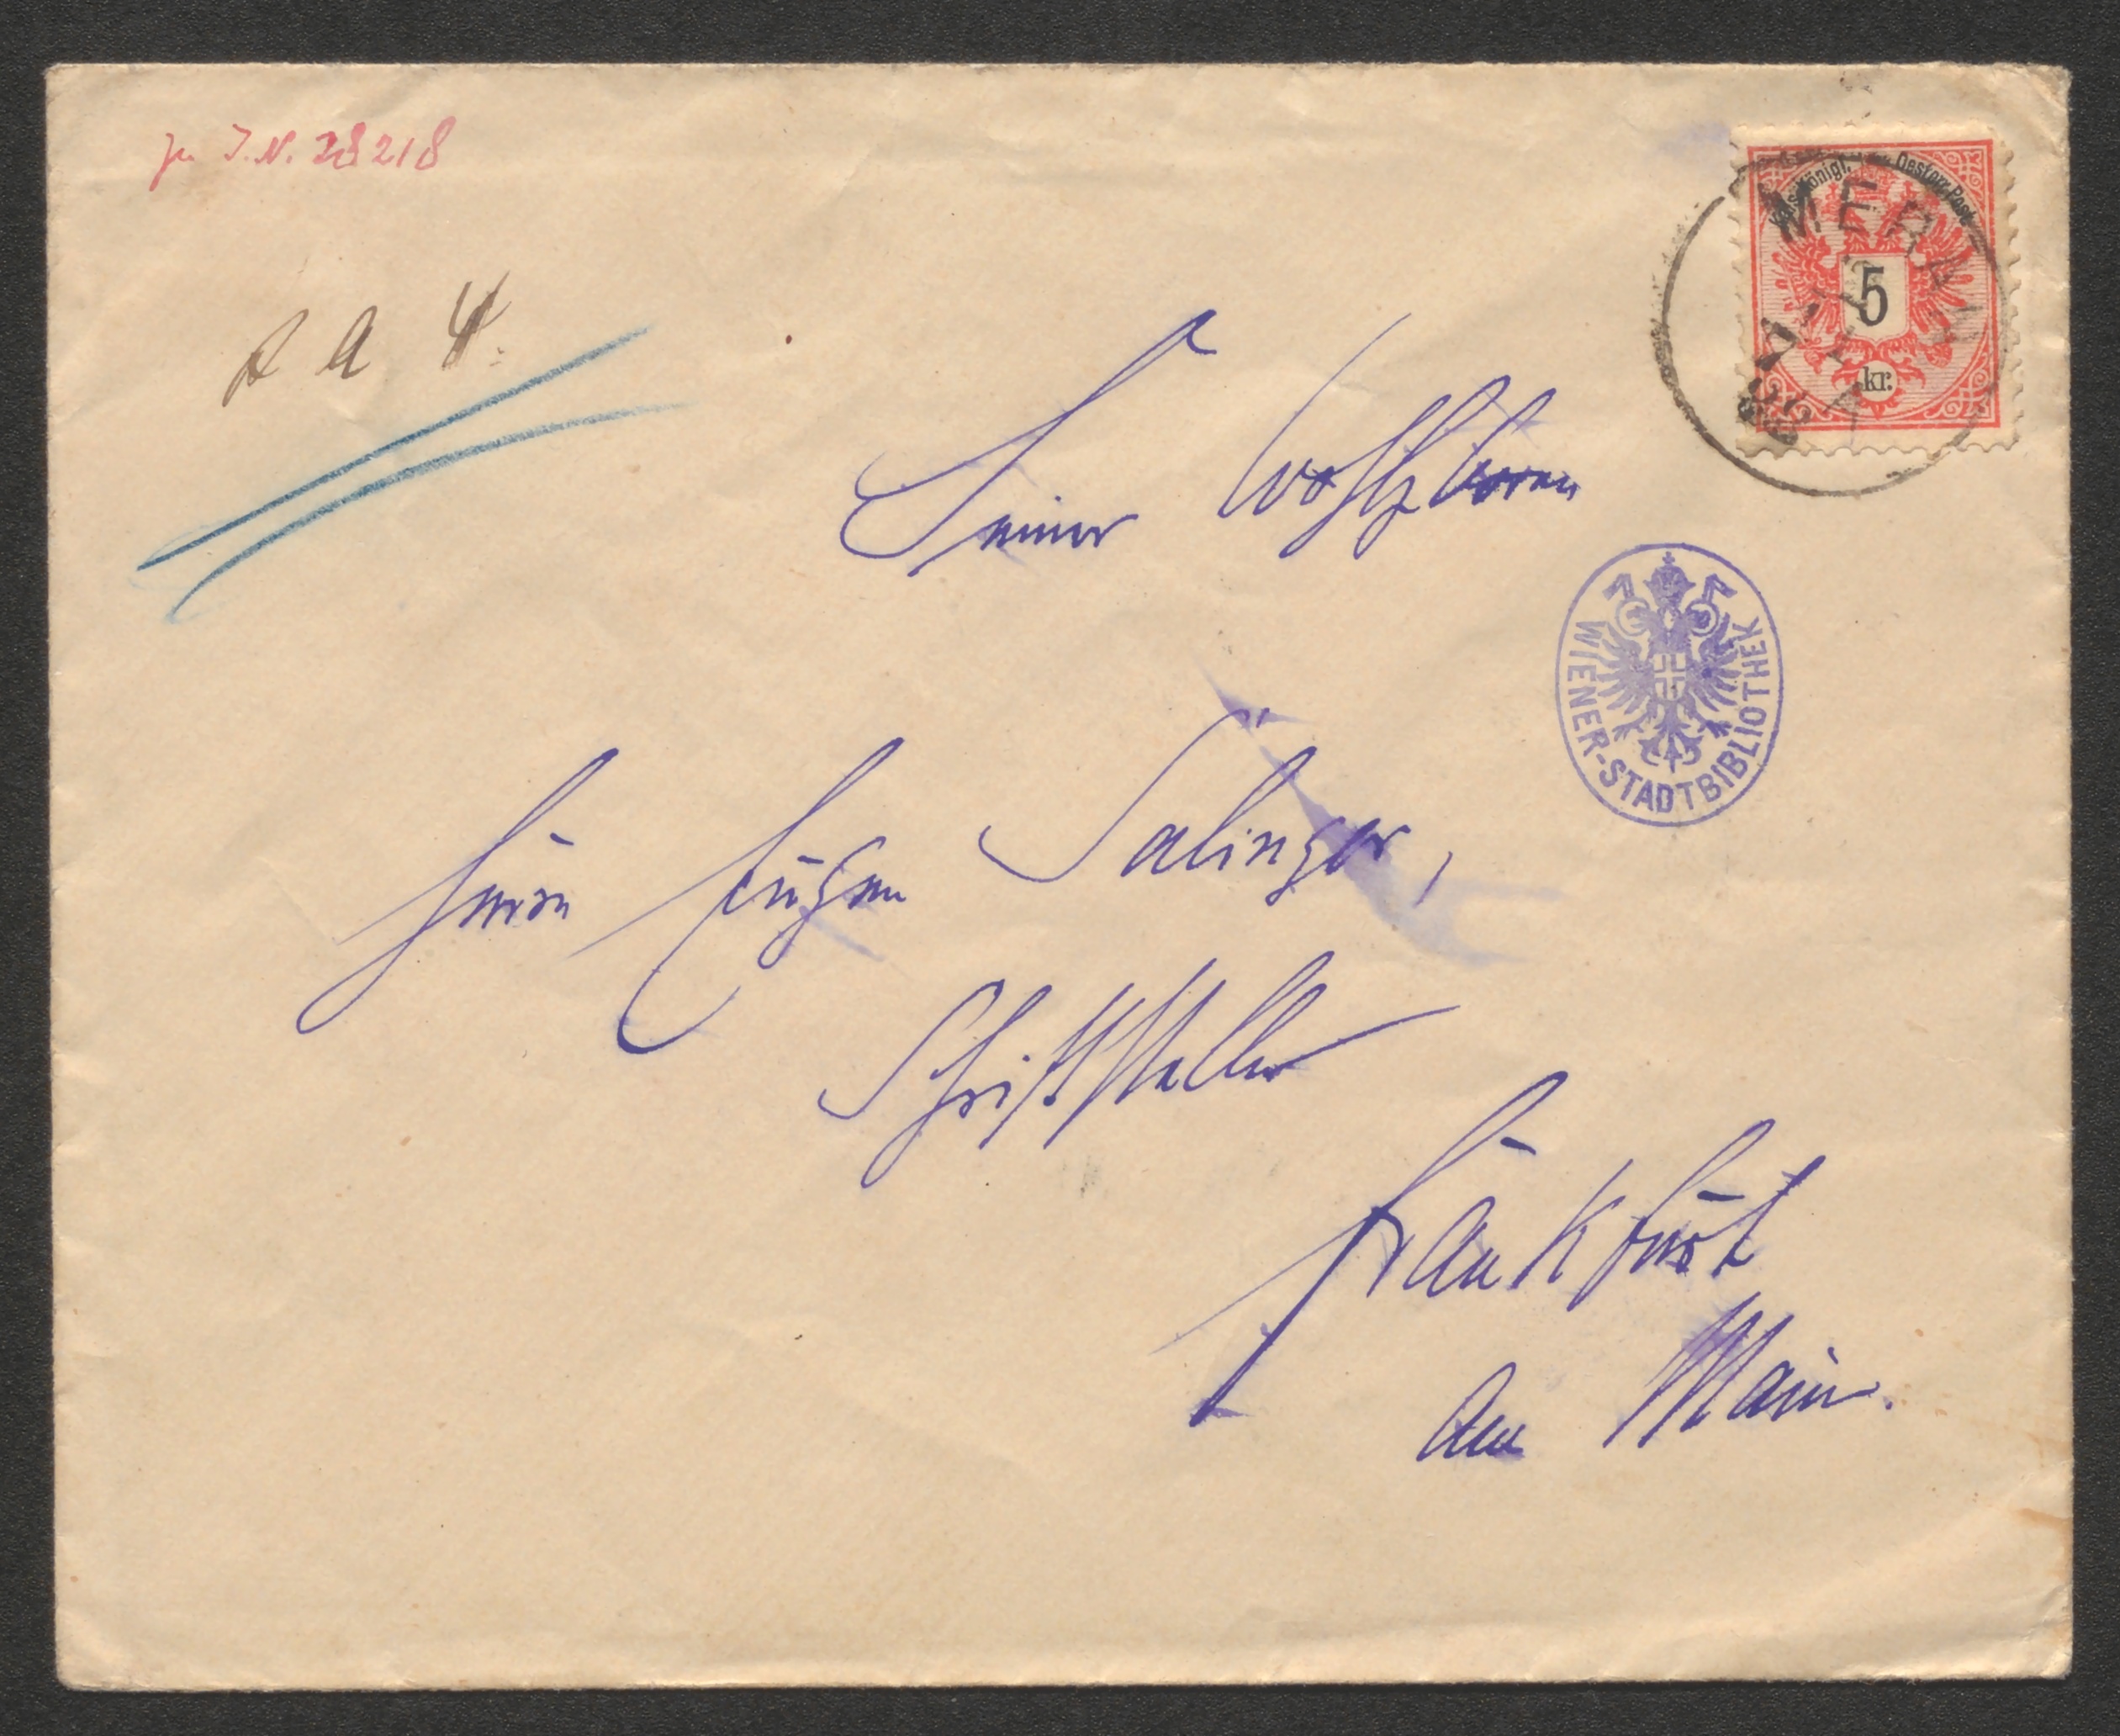 zu J.N. 28218
MERAN
Kais. königl. Oesterr. Post
5
kr.
Seiner Wohlgeboren
WIENER-STADTBIBLIOTHEK
Herrn Eugen Salinger,
Schriftsteller
Frankfurt
am Main.